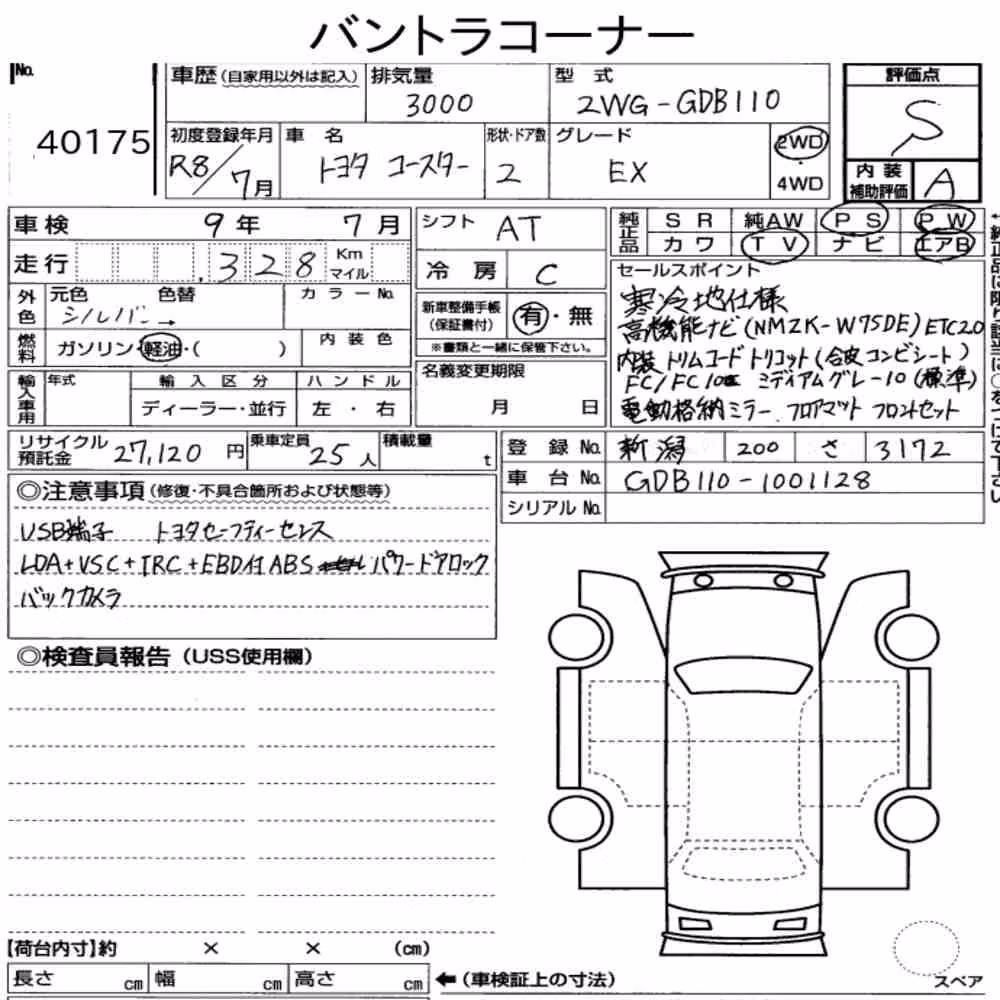 バントラコーナー
No.
40175
車歴 (自家用以外は記入)
排気量
3000
型式
2WG-GDB110
評価点
S
初度登録年月
R8/7月
車名
トヨタ コースター
形状・ドア数
2
グレード
EX
2WD
4WD
内装
補助評価
A
車検 9年 7月
シフト AT
純正品
SR 純AW PS PW
カワ TV ナビ エアB
走行 328 Km マイル
冷房 C
セールスポイント
寒冷地仕様
高機能ナビ(NMZK-W75DE) ETC2.0
内装 トリムコード トリコット(合皮コンビシート)
FC/FC10 ミディアムグレー10(標準)
電動格納ミラー フロアマット フロントセット
外色
元色 色替
シルバー→
カラーNo.
新車整備手帳
(保証書付)
有・無
※書類と一緒に保管下さい。
燃料
ガソリン・軽油・( )
内装色
名義変更期限
月 日
輸入車用
年式
輸入区分
ディーラー・並行
ハンドル
左・右
リサイクル預託金 27,120円
乗車定員 25人
積載量 t
登録No. 新潟 200 さ 3172
車台No. GDB110-1001128
シリアルNo.
◎注意事項 (修復・不具合箇所および状態等)
USB端子 トヨタセーフティーセンス
LDA+VSC+TRC+EBD付ABS パワードアロック
バックカメラ
◎検査員報告 (USS使用欄)
【荷台内寸】約 × × (cm)
長さ cm 幅 cm 高さ cm
← (車検証上の寸法)
スペア